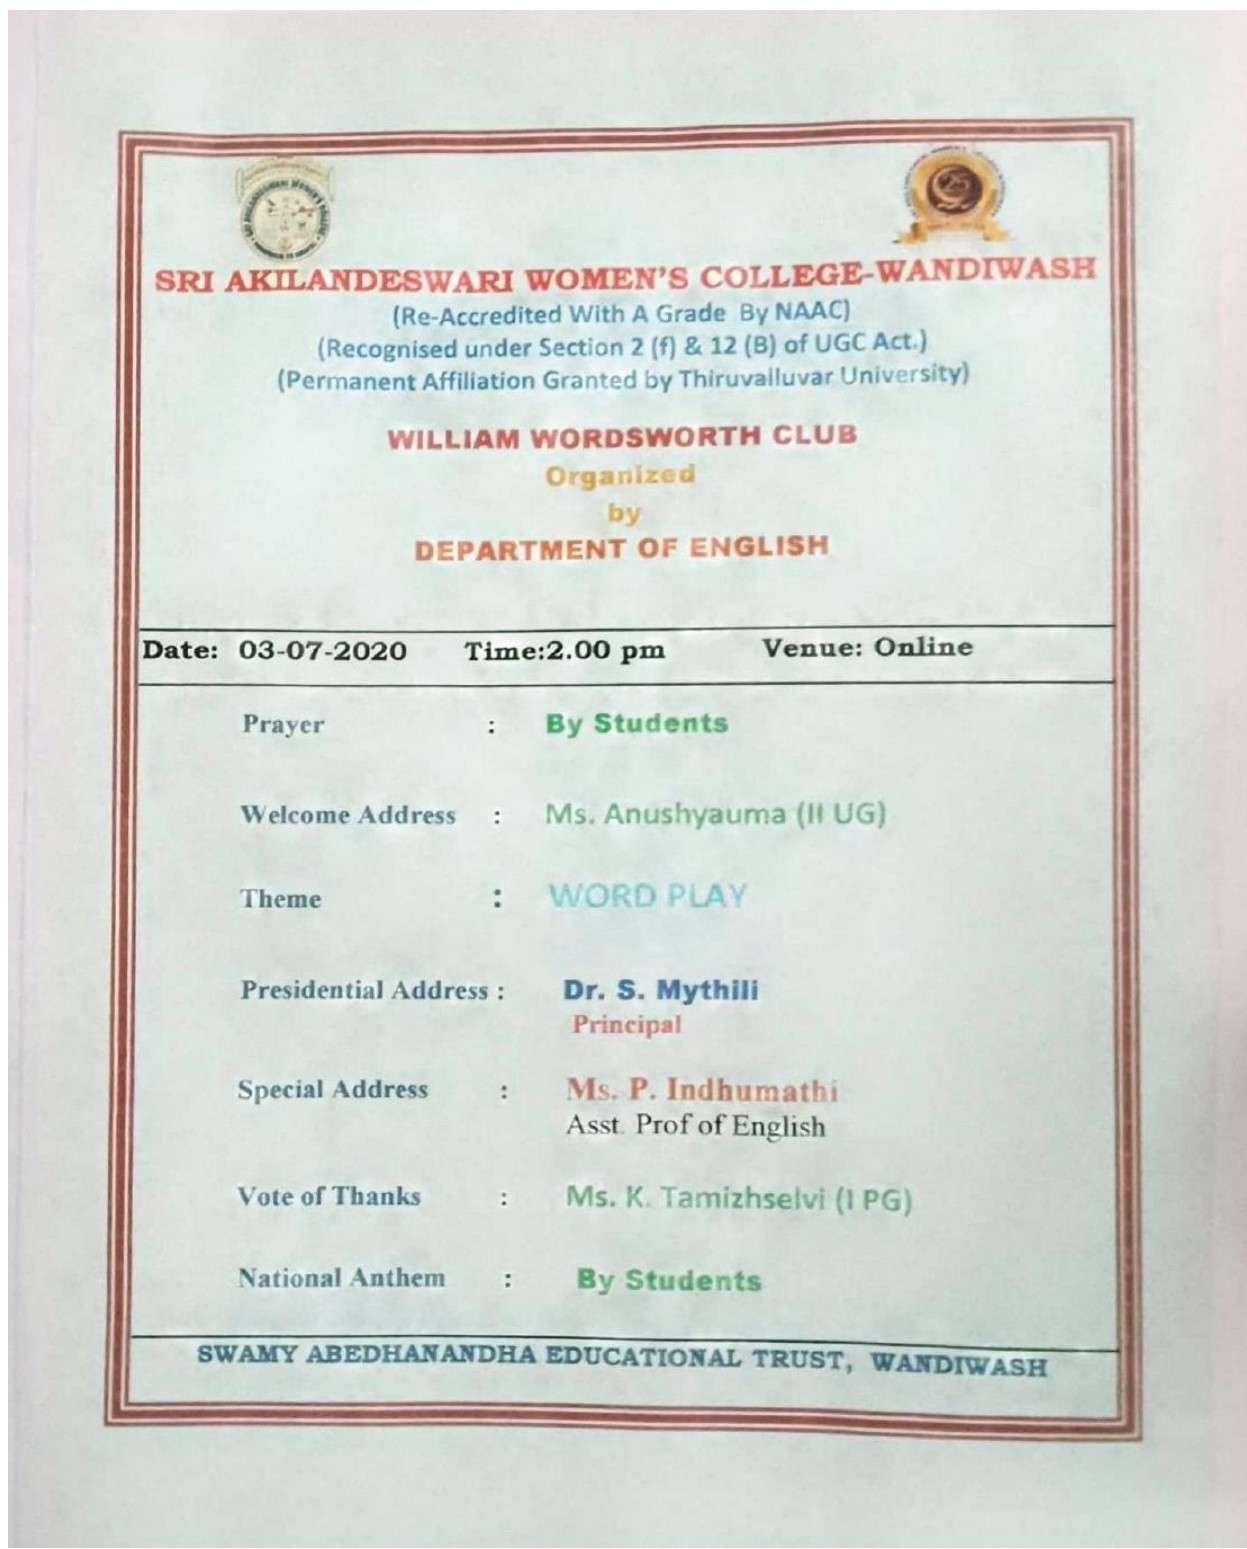 SRI AKILANDESWARI WOMEN'S COLLEGE-WANDIWASH
(Re-Accredited With A Grade By NAAC)
(Recognised under Section 2 (f) & 12 (B) of UGC Act.)
(Permanent Affiliation Granted by Thiruvalluvar University)
WILLIAM WORDSWORTH CLUB
Organized
by
DEPARTMENT OF ENGLISH
Date: 03-07-2020 Time:2.00 pm Venue: Online
Prayer : By Students
Welcome Address : Ms. Anushyauma (II UG)
Theme : WORD PLAY
Presidential Address : Dr. S. Mythili
Principal
Special Address : Ms. P. Indhumathi
Asst. Prof of English
Vote of Thanks : Ms. K. Tamizhselvi (I PG)
National Anthem : By Students
SWAMY ABEDHANANDHA EDUCATIONAL TRUST, WANDIWASH